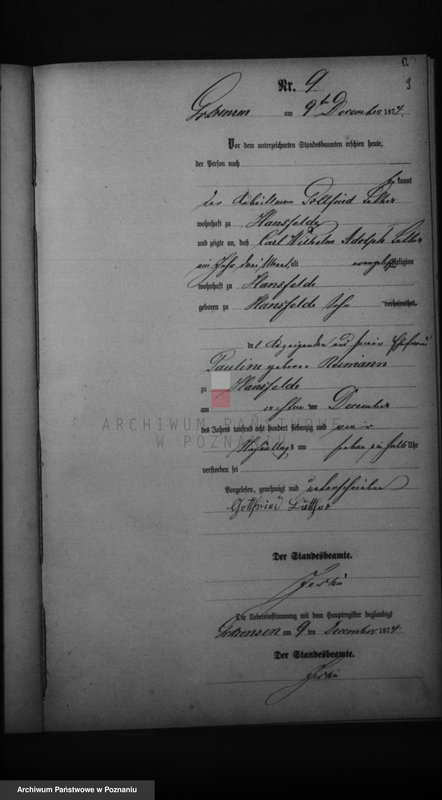 C.
9
Nr. 9.
am 9ten December 1874.
Vor dem unterzeichneten Standesbeamten erschien heute,
der Person nach
bekannt
der Arbeitsmann Gottfried
wohnhaft zu Hansfelde
und zeigte an, daß Carl Wilhelm Adolph
ein Jahr drei Monat alt evangelischer Religion
wohnhaft zu Hansfelde
geboren zu Hansfelde Sohn verheirathet
des Anzeigenden und seiner Ehefrau
Pauline geborene Neumann
zu Hansfelde
am achten December
des Jahres tausend acht hundert siebenzig und vier
Nachmittags um sieben ein halb Uhr
verstorben sei
Vorgelesen, genehmigt und unterschrieben
Gottfried
Der Standesbeamte.
Die Uebereinstimmung mit dem Hauptregister beglaubigt
am 9 ten December 1874
Der Standesbeamte.
ARCHIWUM PAŃSTWOWE
W POZNANIU
Archiwum Państwowe w Poznaniu